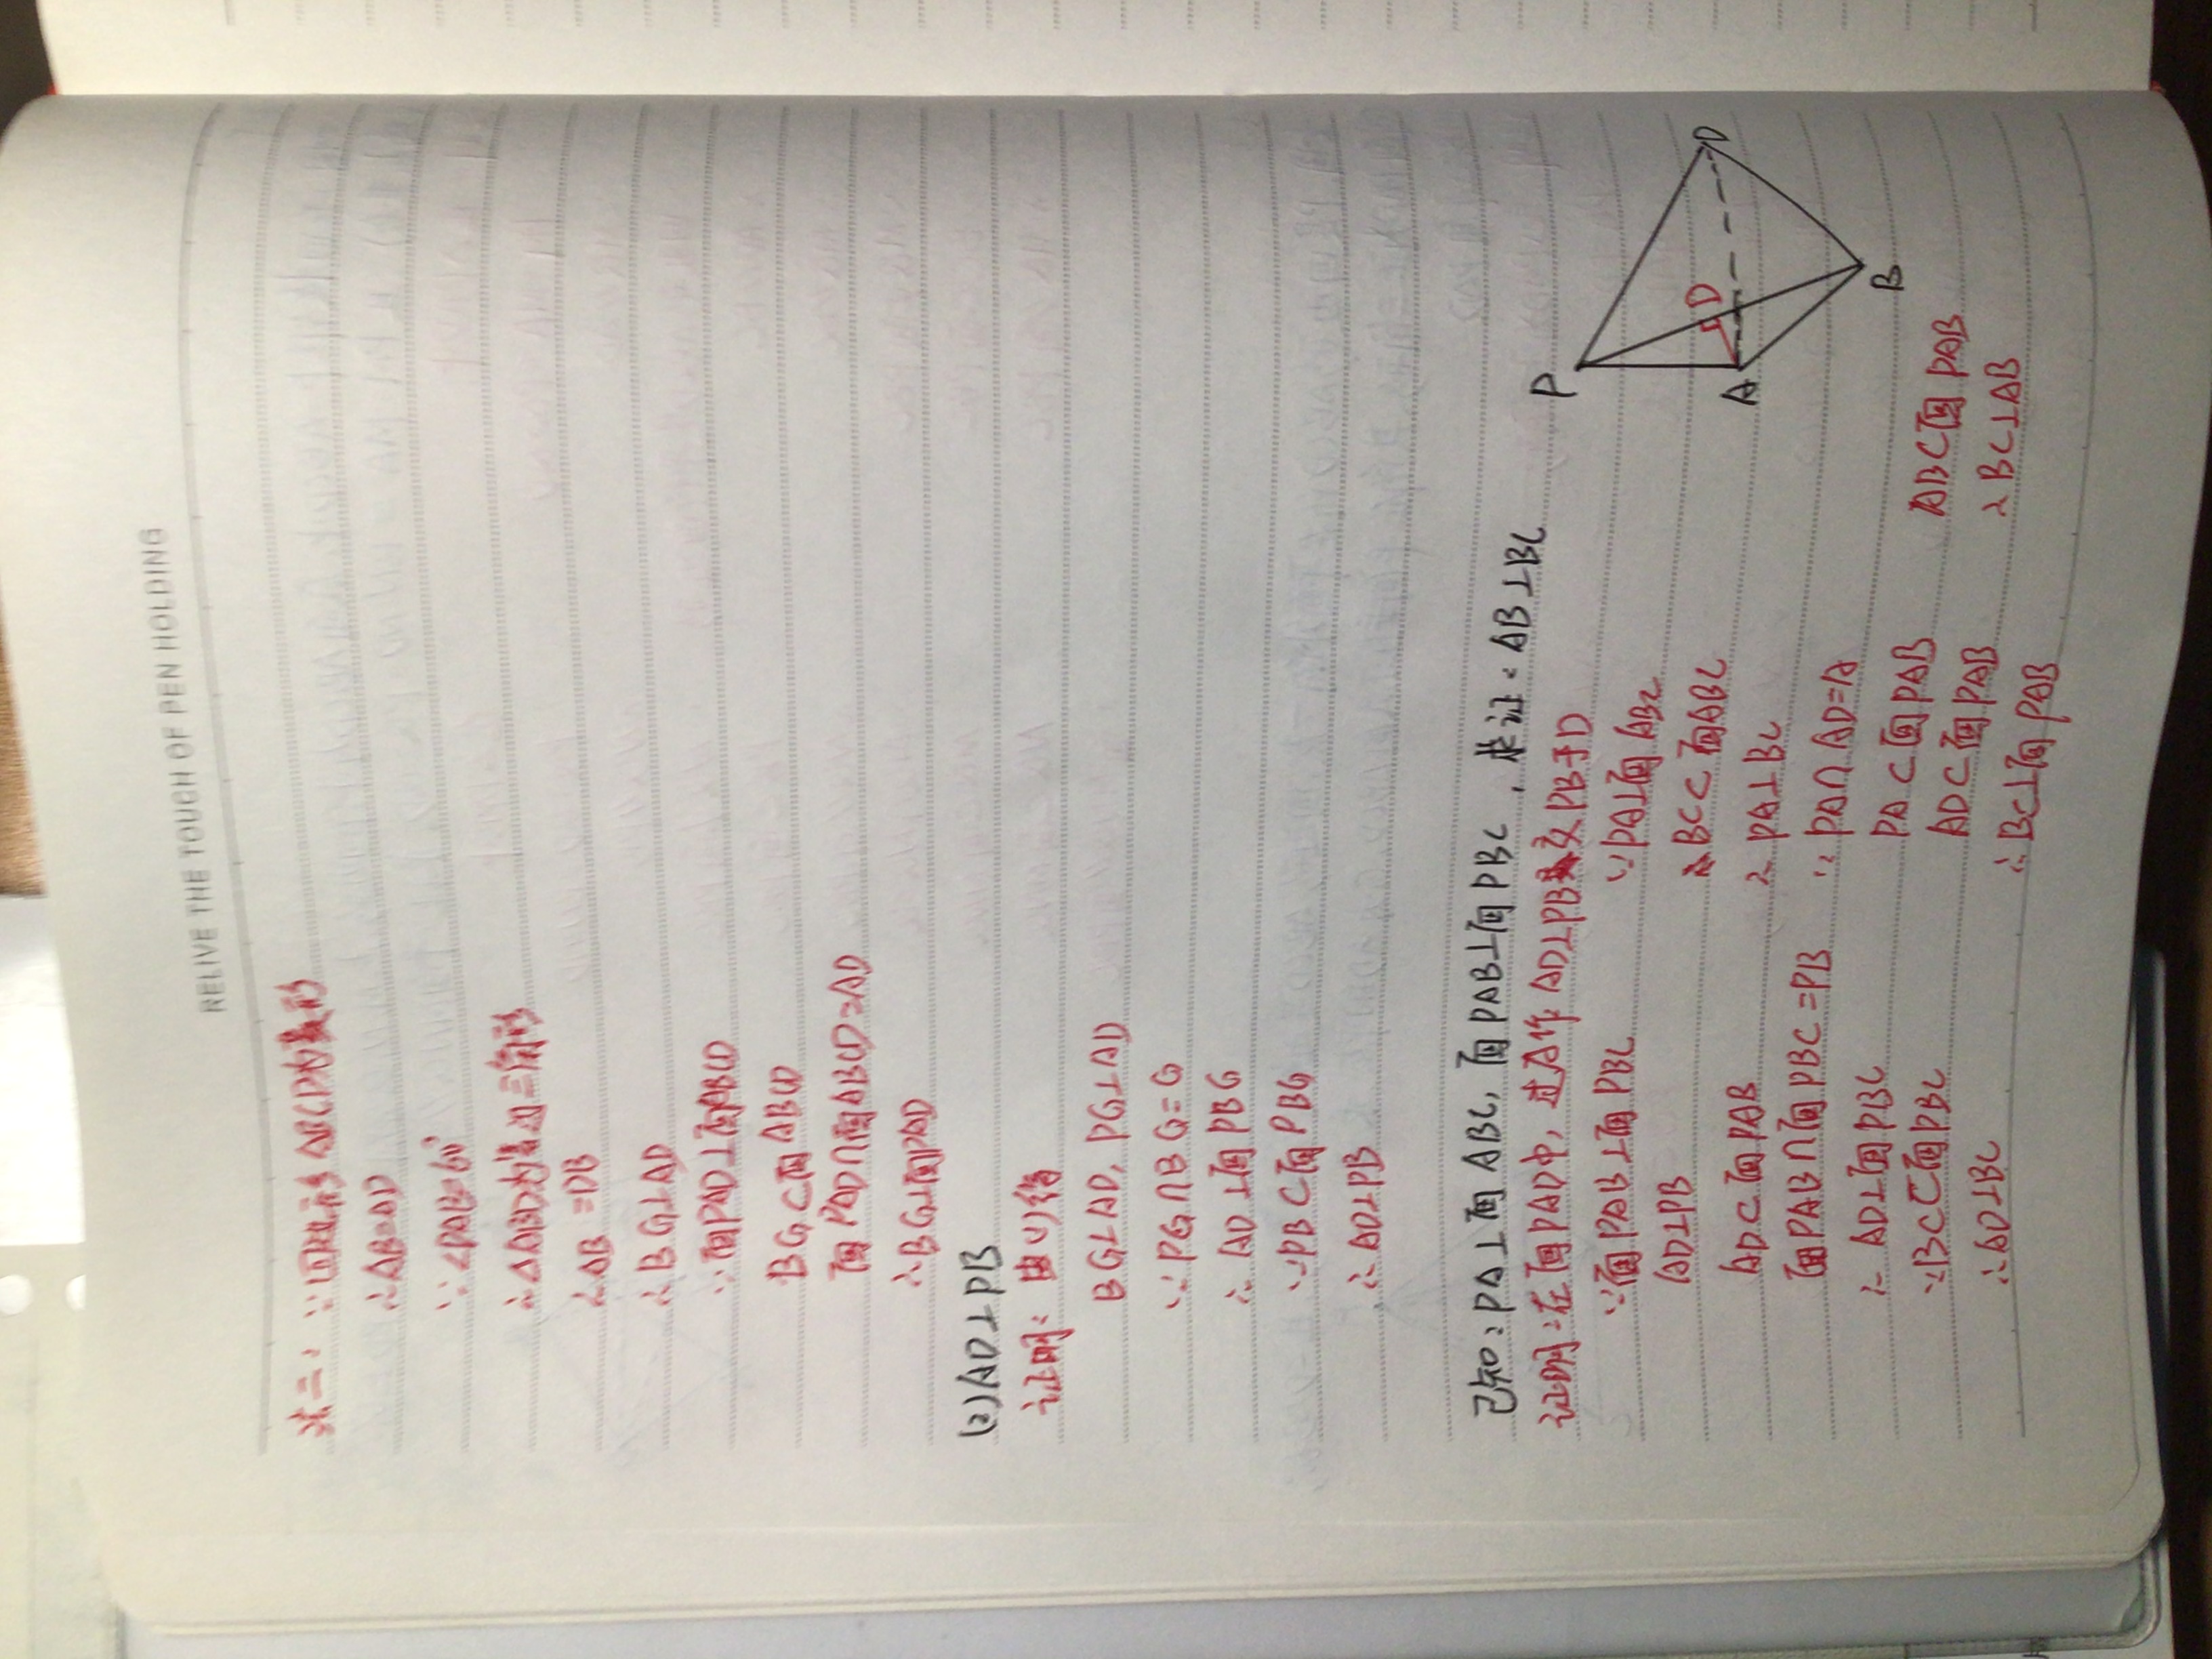 RELIVE THE TOUCH OF PEN HOLDING
法二: ∵四边形ABCD为菱形
∴AB=AD
∵∠DAB=60°
∴△ABD为等边三角形
∴AB=DB
∴BG⊥AD
∵面PAD⊥面ABCD
BG⊂面ABCD
面PAD∩面ABCD=AD
∴BG⊥面PAD
(2)AD⊥PB
证明: 由(1)得
BG⊥AD, PG⊥AD
∵PG∩BG=G
∴AD⊥面PBG
∵PB⊂面PBG
∴AD⊥PB
已知:PA⊥面ABC,面PAB⊥面PBC,求证:AB⊥BC
证明:在面PAD中,过A作AD⊥PB交PB于D
∵面PAB⊥面PBC
AD⊥PB
AD⊂面PAB
面PAB∩面PBC=PB
∴AD⊥面PBC
∵BC⊂面PBC
∴AD⊥BC
∵PA⊥面ABC
BC⊂面ABC
∴PA⊥BC
∵PA∩AD=A
PA⊂面PAB
AD⊂面PAB
∴BC⊥面PAB
AB⊂面PAB
∴BC⊥AB
P
D
A
B